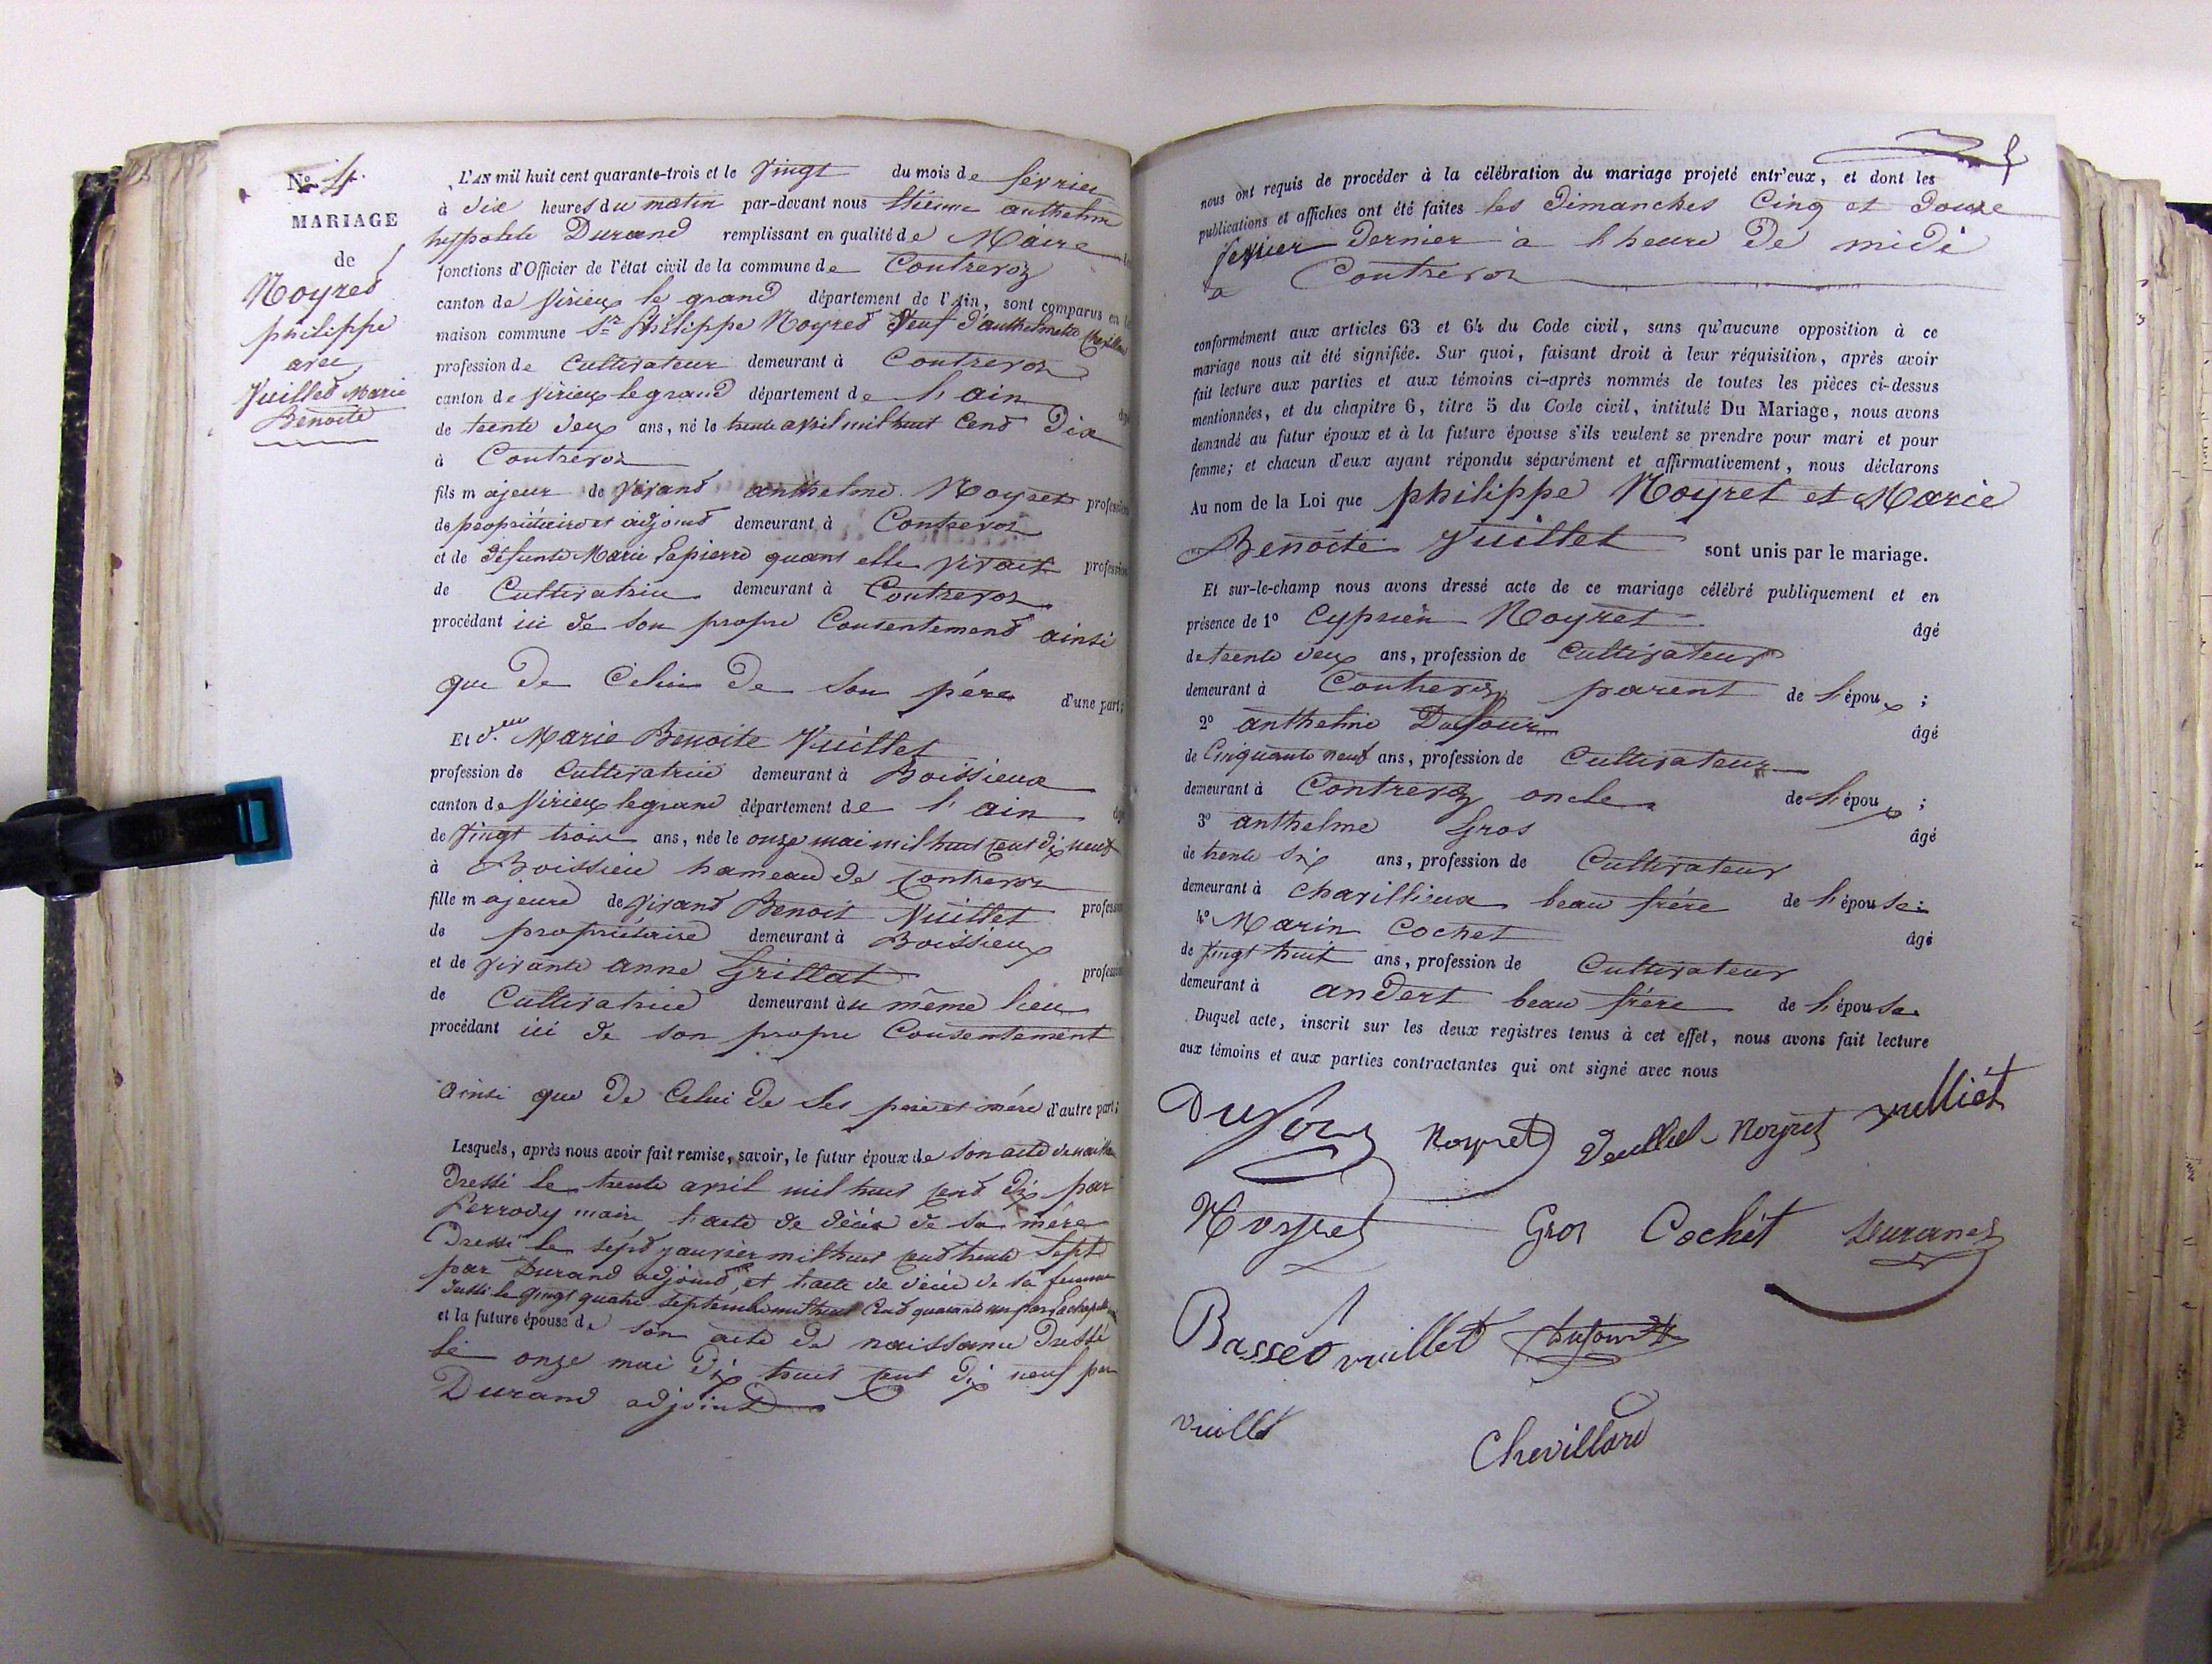 N.º 4.
MARIAGE
de
Noyret
philippe
avec
Vuillet Marie
Benoite
L'AN mil huit cent quarante-trois et le vingt du mois de février
à dix heures du matin par-devant nous Etienne anthelme
hyppolite Durand remplissant en qualité de Maire
fonctions d'Officier de l'état civil de la commune de Contrevoz
canton de Virieux le grand département de l'Ain, sont comparus en
maison commune Sr philippe Noyret Veuf d'anthelmette Chevillard
profession de Cultivateur demeurant à Contrevoz
canton de Virieux le grand département de l'ain
de trente deux ans, né le trente avril mil huit Cent Dix
à Contrevoz
fils majeur de vivant anthelme Noyret profession
de propriétaire et adjoint demeurant à Contrevoz
et de défunte Marie Lapierre quant elle vivait profession
de Cultivatrice demeurant à Contrevoz
procédant ici de son propre Consentement ainsi
que De Celui De Son père d'une part;
Et d.elle Marie Benoite Vuillet
profession de Cultivatrice demeurant à Boissieux
canton de Virieux legrand département de l'ain
de vingt trois ans, née le onze mai mil huit cent dix neuf
à Boissieu hameau de Contrevoz
fille majeure de vivant Benoit Vuillet profession
de propriétaire demeurant à Boissieux
et de vivante anne Grillat profession
de Cultivatrice demeurant au même lieu
procédant ici de son propre Consentement
ainsi que De Celui De Ses père et mère d'autre part;
Lesquels, après nous avoir fait remise, savoir, le futur époux de son acte de naissance
Dressé le trente avril mil huit cent dix par
Perrody maire, l'acte de décès de sa mère
Dressé le sept janvier mil huit cent trente sept
par Durand adjoint et l'acte de décès de sa femme
dressé le vingt quatre septembre mil huit Cent quarante un par
et la future épouse de son acte de naissance dressé
le onze mai dix huit cent dix neuf par
Durand adjoint
nous ont requis de procéder à la célébration du mariage projeté entr'eux, et dont les
publications et affiches ont été faites les Dimanches Cinq et Douze
fevrier Dernier à l'heure De midi
a Contrevoz
conformément aux articles 63 et 64 du Code civil, sans qu'aucune opposition à ce
mariage nous ait été signifiée. Sur quoi, faisant droit à leur réquisition, après avoir
fait lecture aux parties et aux témoins ci-après nommés de toutes les pièces ci-dessus
mentionnées, et du chapitre 6, titre 5 du Code civil, intitulé Du Mariage, nous avons
demandé au futur époux et à la future épouse s'ils veulent se prendre pour mari et pour
femme; et chacun d'eux ayant répondu séparément et affirmativement, nous déclarons
Au nom de la Loi que philippe Noyret et Marie
Benoite Vuillet sont unis par le mariage.
Et sur-le-champ nous avons dressé acte de ce mariage célébré publiquement et en
présence de 1º Cyprien Noyret âgé
de trente deux ans, profession de Cultivateur
demeurant à Contrevoz parent de l'époux;
2º anthelme Dufour âgé
de Cinquante neuf ans, profession de Cultivateur
demeurant à Contrevoz oncle de l'époux;
3º anthelme Gros âgé
de trente six ans, profession de Cultivateur
demeurant à Chavillieux beau frère de l'épouse;
4º Marin Cochet âgé
de vingt huit ans, profession de Cultivateur
demeurant à andert beau frère de l'épouse.
Duquel acte, inscrit sur les deux registres tenus à cet effet, nous avons fait lecture
aux témoins et aux parties contractantes qui ont signé avec nous
Dufour Noyret Veuillet Noyret vulliet
Noyret Gros Cochet Durand
Basset vuillet Dufour
vuillet Chevillard